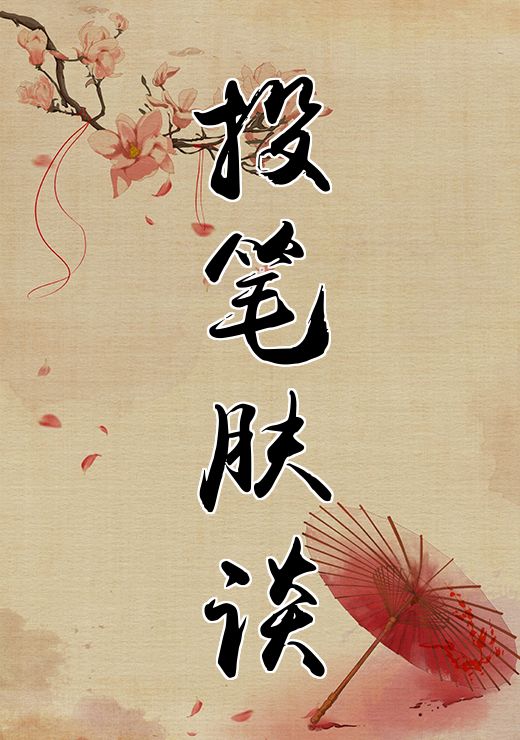 投笔肤谈